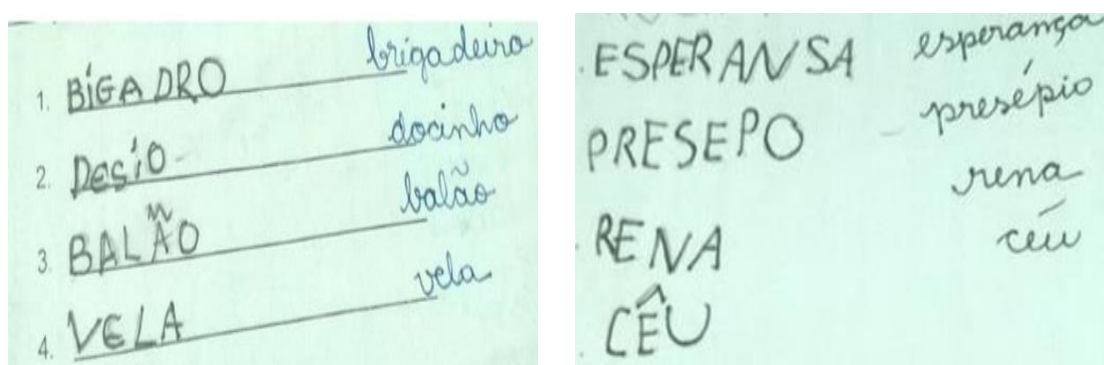 1. BIGADRO brigadeiro
2. DESIO docinho
3. BALÃO balão
4. VELA vela
ESPERANSA esperança
PRESEPO presépio
RENA rena
CÊU céu